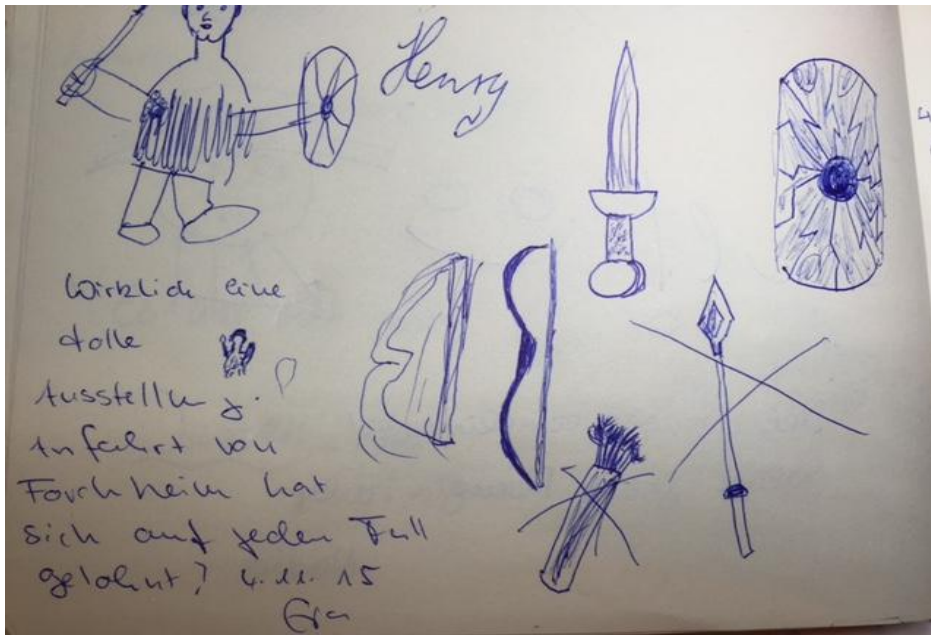 Henry
Wirklich eine
tolle
Ausstellung.
Anfahrt von
Forchheim hat
sich auf jeden Fall
gelohnt! 4.11.15